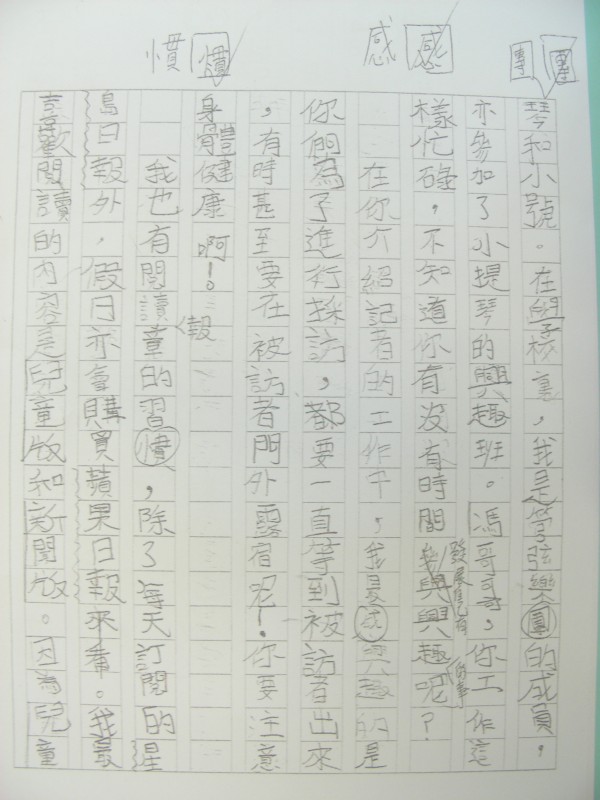 團
感 感
慣 慣
琴和小號。在學校裏，我是管弦樂團的成員，
亦參加了小提琴的興趣班。馮哥哥，你工作這
樣忙碌，不知道你有沒有時間發展自己有興趣的事呢？
在你介紹記者的工作中，我最感興趣的是
你們為了進行採訪，都要一直等到被訪者出來
，有時甚至要在被訪者門外露宿呢！你要注意
身體健康啊！
我也有閱讀報章的習慣，除了每天訂閱的星
島日報外，假日亦會購買蘋果日報來看。我最
喜歡閱讀的內容是兒童版和新聞版。因為兒童